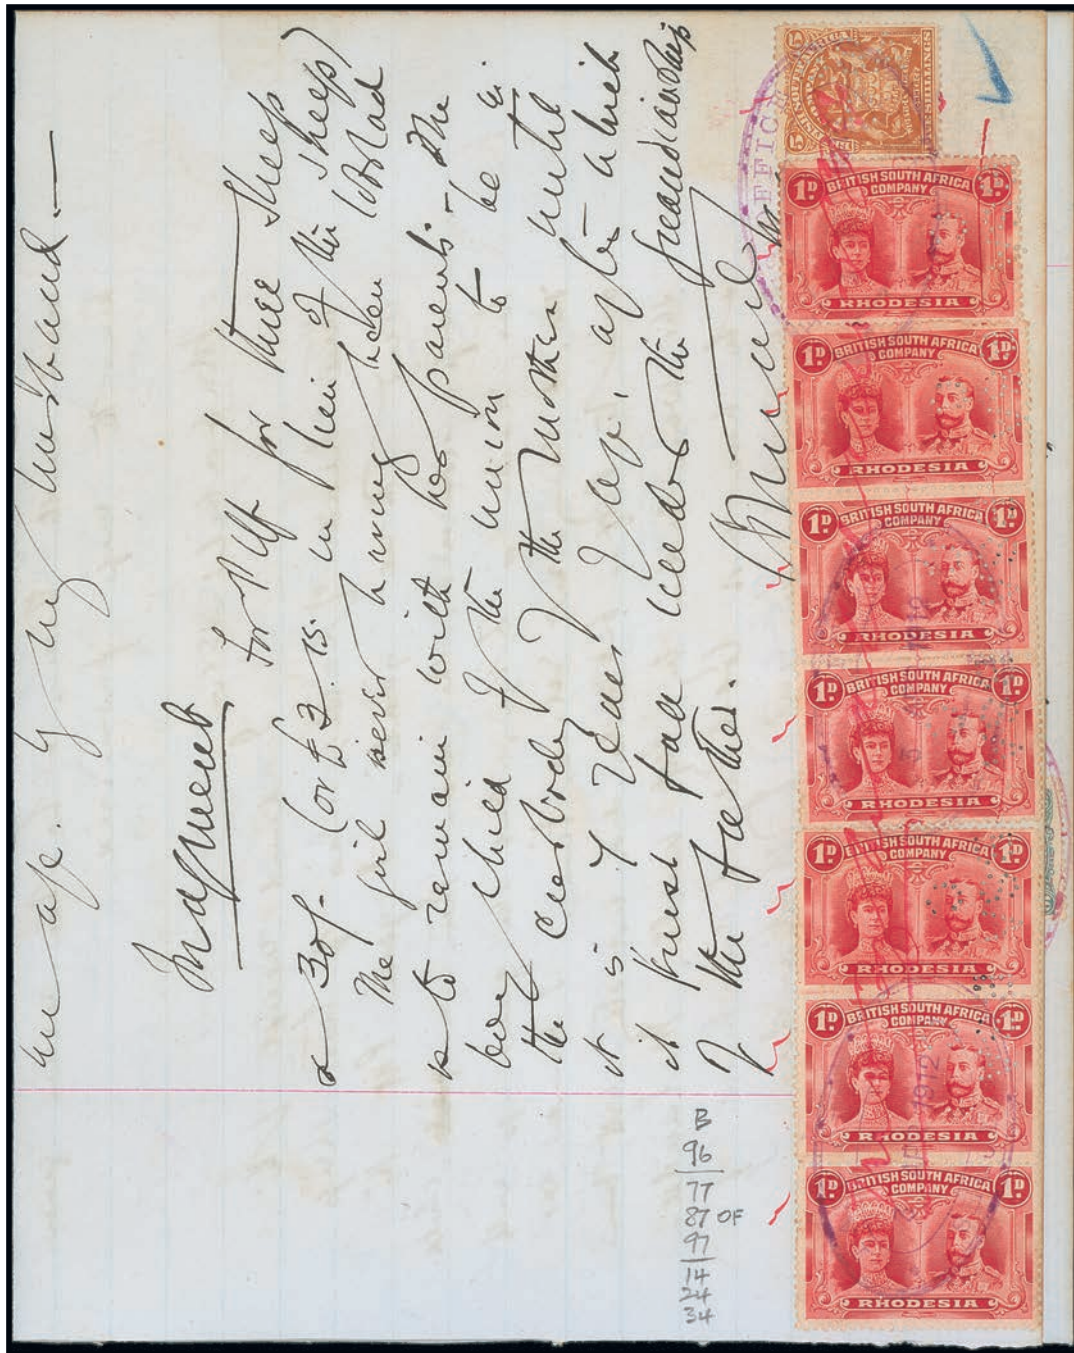 age. of my husband.—
Judgment
For Pltf for three sheep
& 30/- (or £3.15. in lieu of the sheep)
The girl never having been lobolad
is to remain with her parents. The
boy child of the union to be in
the custody of the mother until
it is 7 years of age, after which
it must fall under the guardianship
of the father.
B
96
77
87 OF
97
14
24
34
5/
BRITISH SOUTH AFRICA
COMPANY
5/
OFFICE
1D BRITISH SOUTH AFRICA 1D
COMPANY
RHODESIA
1D BRITISH SOUTH AFRICA 1D
COMPANY
RHODESIA
1D BRITISH SOUTH AFRICA 1D
COMPANY
RHODESIA
1D BRITISH SOUTH AFRICA 1D
COMPANY
RHODESIA
1D BRITISH SOUTH AFRICA 1D
COMPANY
RHODESIA
1D BRITISH SOUTH AFRICA 1D
COMPANY
RHODESIA
1912
1D BRITISH SOUTH AFRICA 1D
COMPANY
RHODESIA